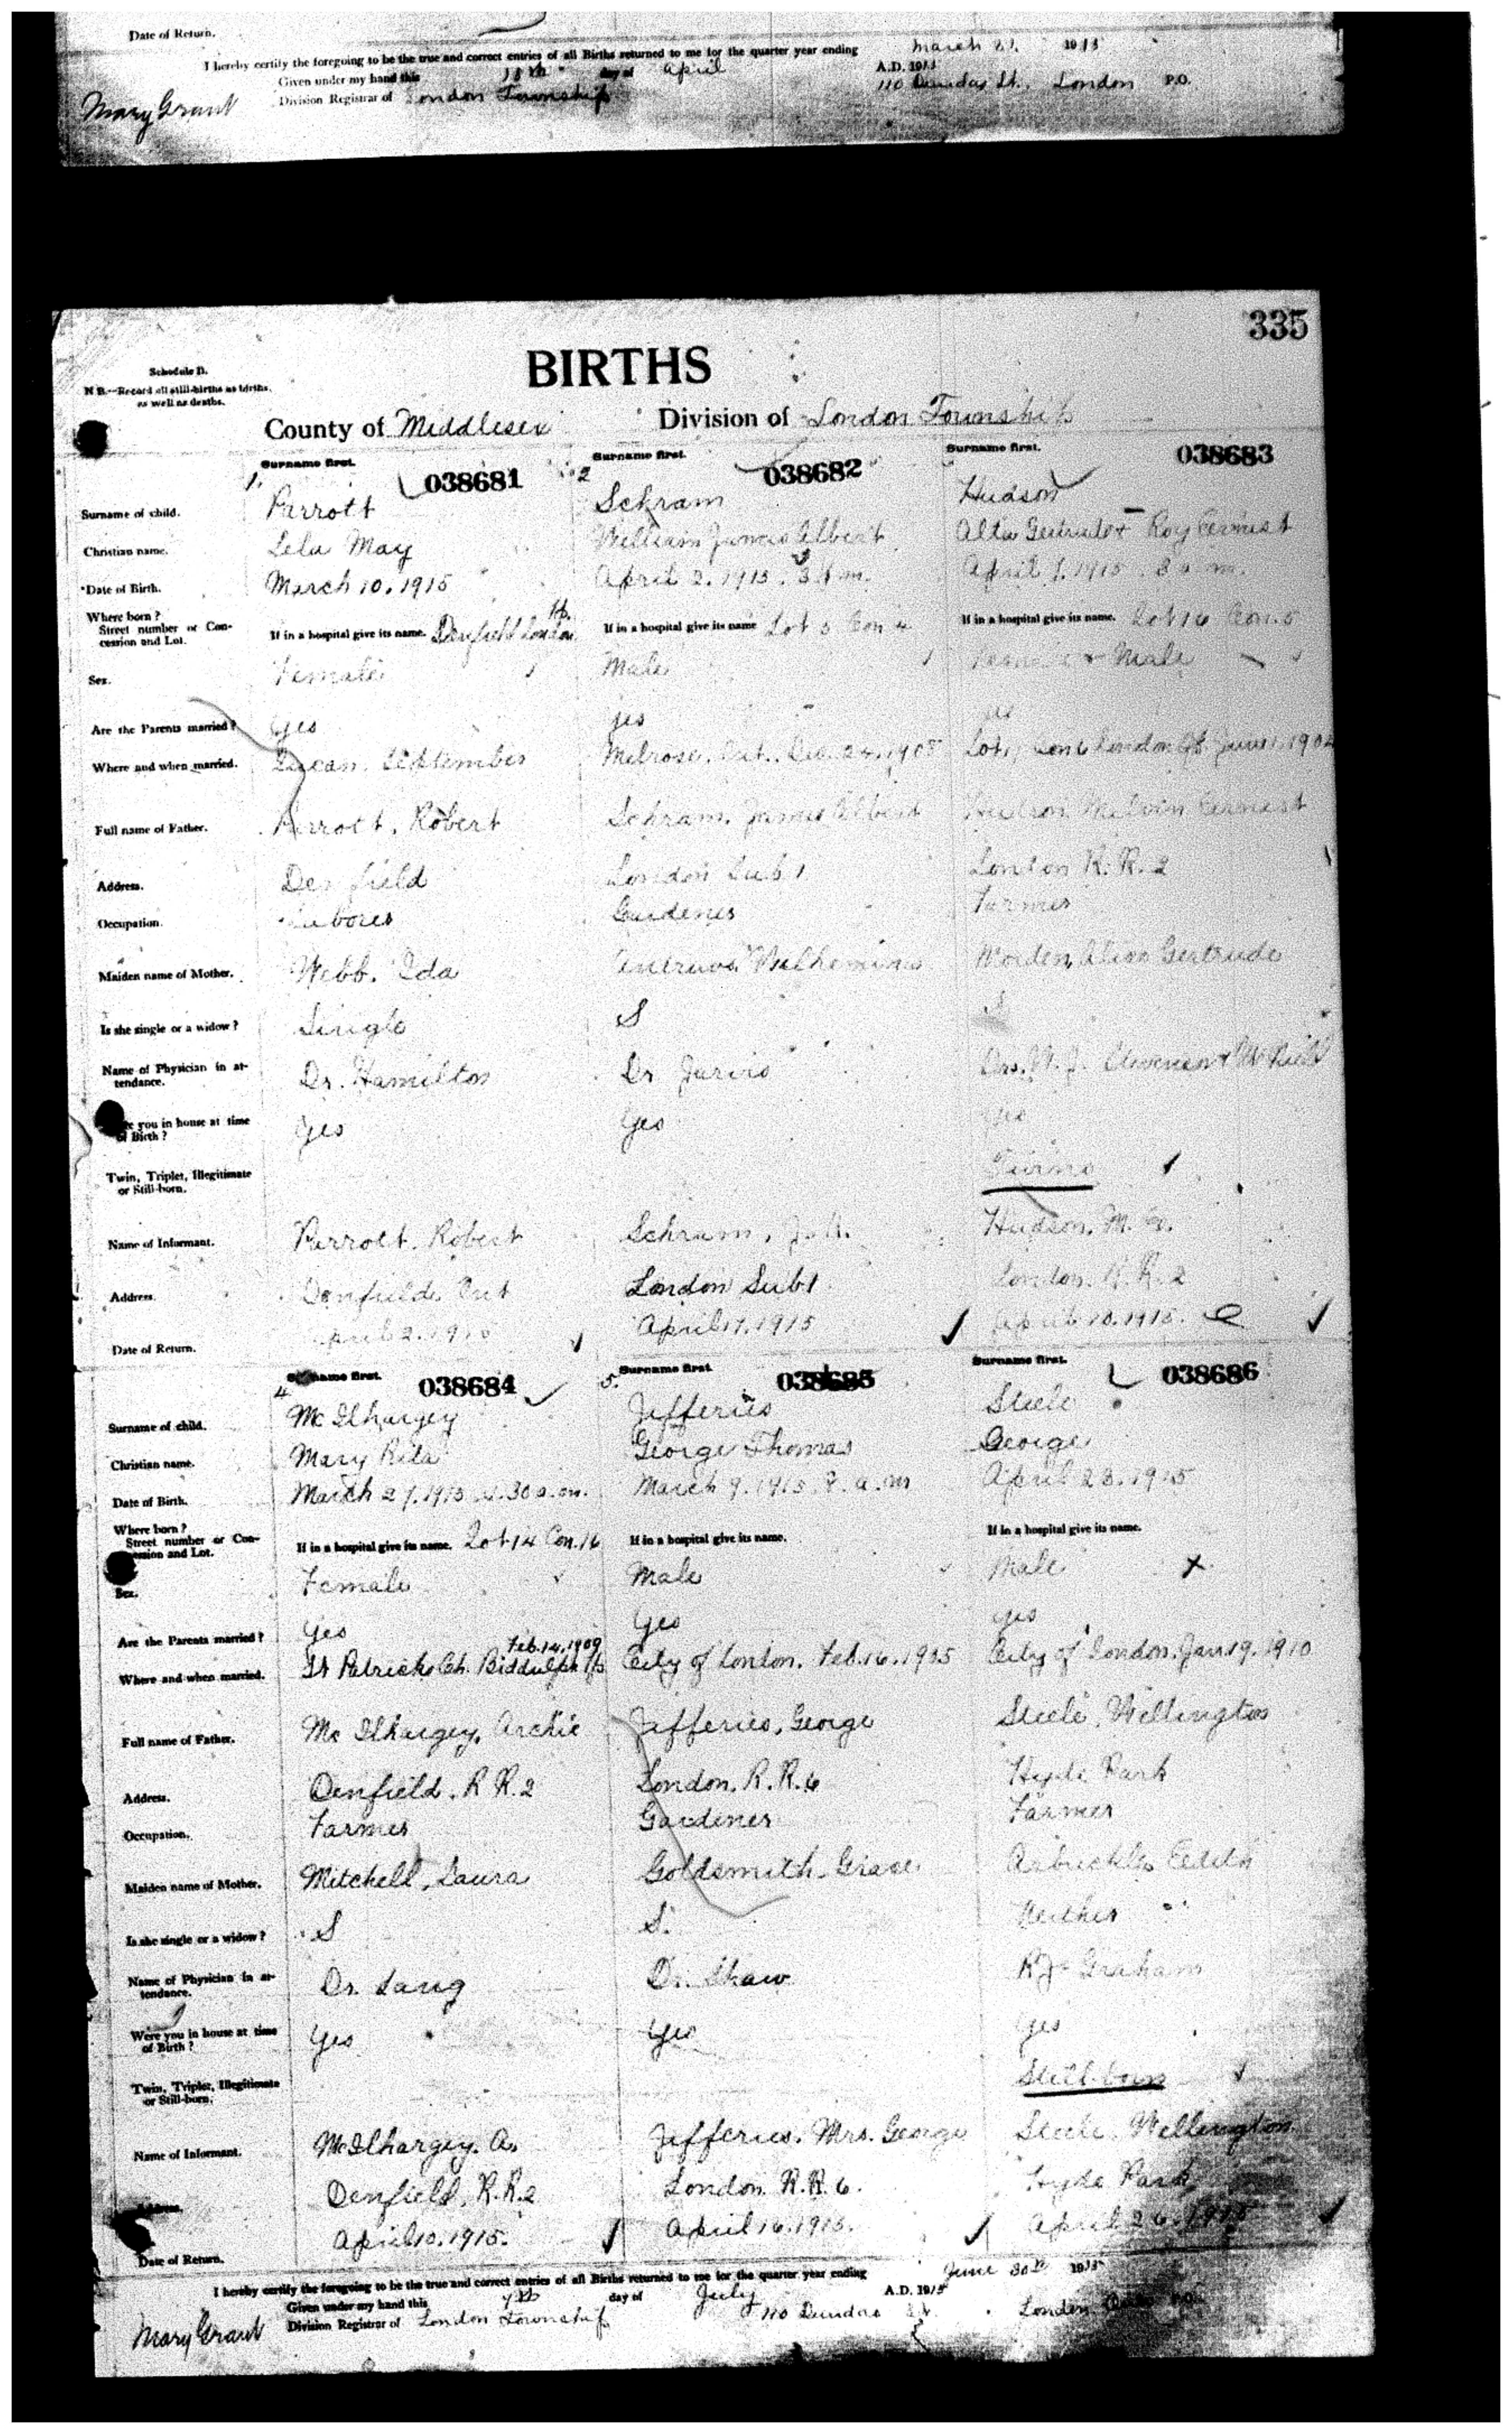 Date of Return.
I hereby certify the foregoing to be the true and correct entries of all Births returned to me for the quarter year ending March 31. 1915
Given under my hand this day of April A.D. 1915
Mary Grant Division Registrar of London Township 110 Dundas St. London P.O.
335
Schedule B.
N B.—Record all still-births as births, as well as deaths.
BIRTHS
County of Middlesex Division of London Township
Surname first. Surname first. Surname first.
1. 038681 2 038682 038683
Surname of child. Parrott Schram Hudson
Christian name. Lela May William James Albert Alta Gertrude + Roy Earnest
*Date of Birth. March 10. 1915 April 2. 1915. April 1. 1915 8 a m.
Where born? Street number or Concession and Lot. If in a hospital give its name. Denfield London Tp. If in a hospital give its name Lot 5 Con 4 If in a hospital give its name. Lot 16 Con. 5
Sex. Female Male Female + Male
Are the Parents married? Yes yes yes
Where and when married. Lucan. September Melrose. Ont. Dec. 24. 1908 Lot, Con 6 London Tp. June 1. 1904
Full name of Father. Parrott. Robert Schram. James Albert Hudson Melvin Earnest
Address. Denfield London Sub 1 London R. R. 2
Occupation. Laborer Gardener Farmer
Maiden name of Mother. Webb. Ida Worden, Gertrude
Is she single or a widow? Single S S
Name of Physician in attendance. Dr. Hamilton Dr Jarvis
Were you in house at time of Birth? Yes Yes yes
Twin, Triplet, Illegitimate or Still-born. Twins
Name of Informant. Parrott. Robert Schram, Hudson. M. E.
Address. Denfield. Ont London Sub 1 London. R. R. 2
Date of Return. April 2. 1915 April 17. 1915 April 10. 1915.
Surname first. Surname first. Surname first.
4 038684 5. 038685 038686
Surname of child. McIlhargey Jefferies Steele
Christian name. Mary Rita George Thomas George
Date of Birth. March 27. 1915 .30 a.m. March 9. 1915. 8. a.m April 23. 1915
Where born? Street number or Concession and Lot. If in a hospital give its name. Lot 14 Con. 16 If in a hospital give its name. If in a hospital give its name.
Sex. Female Male Male X
Are the Parents married? Yes Yes yes
Where and when married. St Patricks Ch. Biddulph Tp Feb. 14. 1909 City of London. Feb. 16. 1915 City of London. Jan 19. 1910
Full name of Father. McIlhargey, Archie Jefferies, George Steele, Wellington
Address. Denfield. R R. 2 London. R. R. 6 Hyde Park
Occupation. Farmer Gardener Farmer
Maiden name of Mother. Mitchell, Laura Goldsmith. Grace Arbuckle. Edith
Is she single or a widow? S S. Neither
Name of Physician in attendance. Dr. Lang Dr. Shaw R. J. Graham
Were you in house at time of Birth? Yes Yes Yes
Twin, Triplet, Illegitimate or Still-born. Still-born
Name of Informant. McIlhargey. A. Jefferies. Mrs. George Steele, Wellington
Address. Denfield. R. R. 2 London. R. R. 6. Hyde Park
Date of Return. April 10. 1915. April 16. 1915. April 26. 1915
I hereby certify the foregoing to be the true and correct entries of all Births returned to me for the quarter year ending June 30th 1915
Given under my hand this 7th day of July A.D. 1915
Mary Grant Division Registrar of London Township 110 Dundas St. London